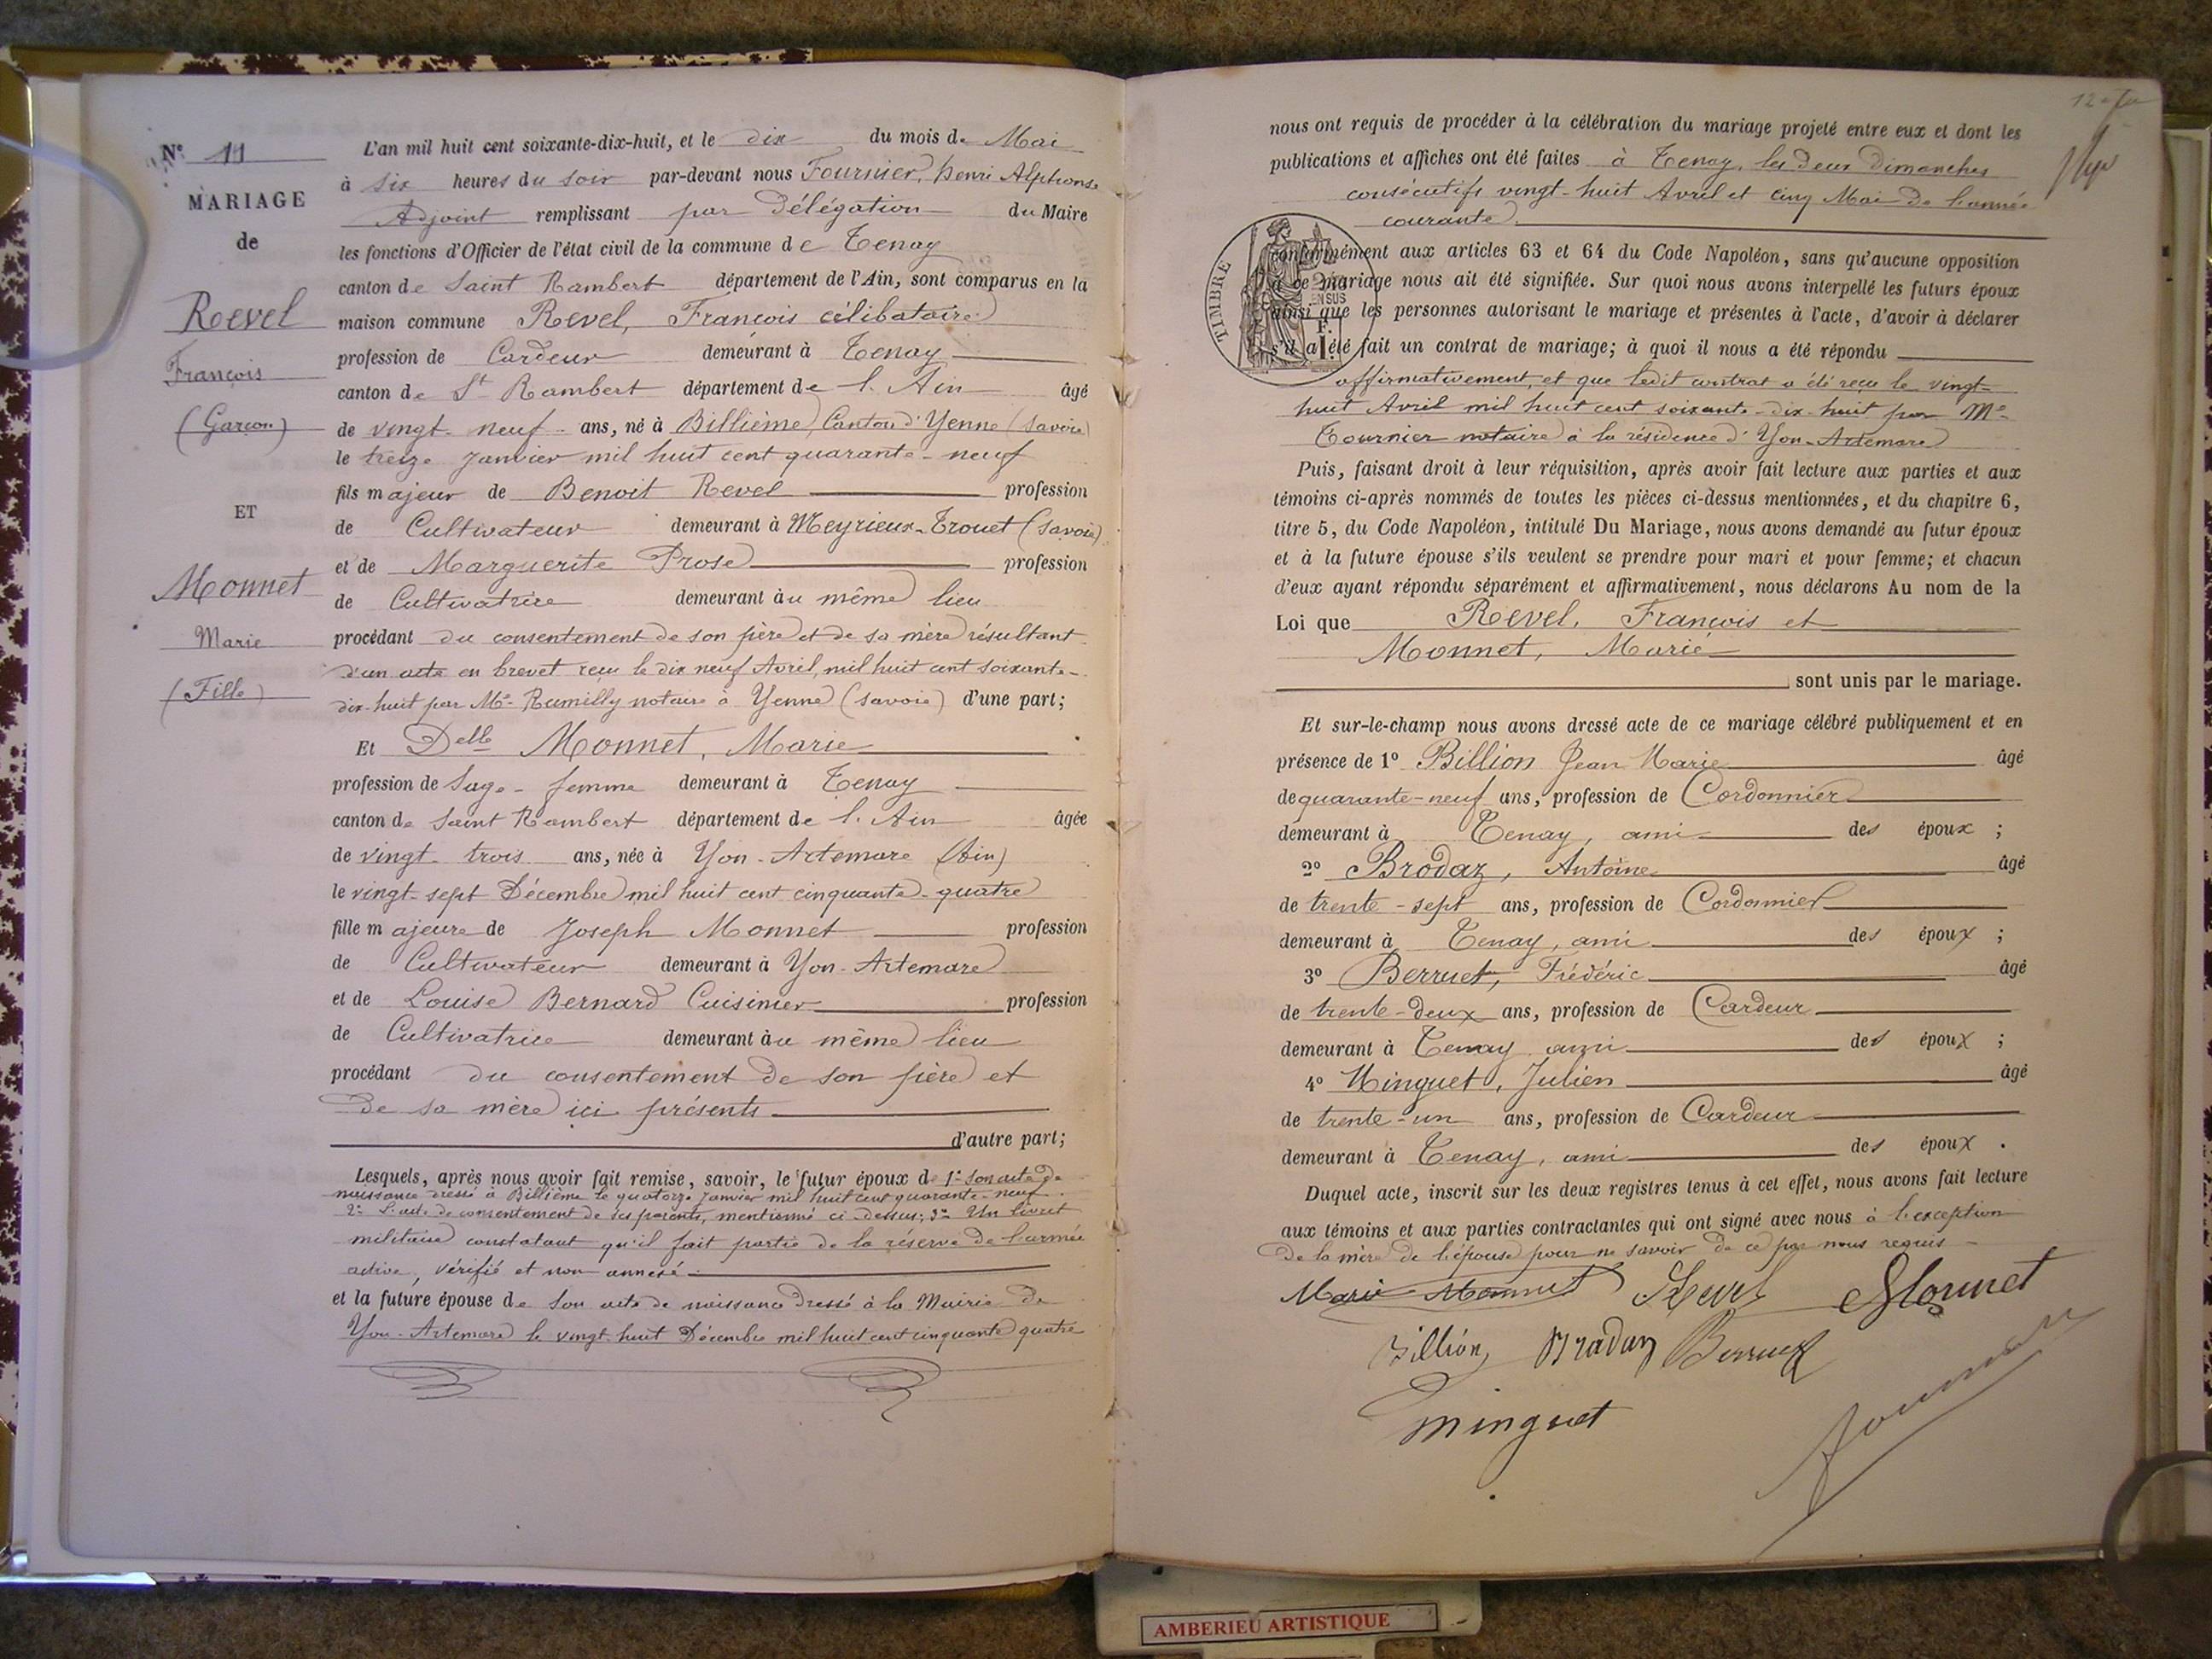 Nº 11
MARIAGE
de
Revel
François
(Garçon)
ET
Monnet
Marie
(Fille)
L'an mil huit cent soixante-dix-huit, et le dix du mois de Mai
à six heures du soir par-devant nous Fournier, Henri Alphonse
Adjoint remplissant par Délégation du Maire
les fonctions d'Officier de l'état civil de la commune de Tenay
canton de Saint Rambert département de l'Ain, sont comparus en la
maison commune Revel, François célibataire
profession de Cardeur demeurant à Tenay
canton de St Rambert département de l'Ain âgé
de vingt-neuf ans, né à Billième, Canton d'Yenne (Savoie)
le treize Janvier mil huit cent quarante-neuf
fils majeur de Benoit Revel profession
de Cultivateur demeurant à Meyrieux-Trouet (Savoie)
et de Marguerite Prose profession
de Cultivatrice demeurant au même lieu
procédant du consentement de son père et de sa mère résultant
d'un acte en brevet reçu le dix neuf Avril, mil huit cent soixante-
dix-huit par Me Rumilly notaire à Yenne (Savoie) d'une part;
Et Delle Monnet, Marie
profession de Sage-femme demeurant à Tenay
canton de Saint Rambert département de l'Ain âgée
de vingt-trois ans, née à Yon-Artemare (Ain)
le vingt-sept Décembre mil huit cent cinquante-quatre
fille majeure de Joseph Monnet profession
de Cultivateur demeurant à Yon-Artemare
et de Louise Bernard Cuisinier profession
de Cultivatrice demeurant au même lieu
procédant du consentement de son père et
de sa mère ici présents
d'autre part;
Lesquels, après nous avoir fait remise, savoir, le futur époux de 1º son acte de
naissance dressé à Billième le quatorze Janvier mil huit cent quarante-neuf
2º L'acte de consentement de ses parents, mentionné ci-dessus; 3º Un livret
militaire constatant qu'il fait partie de la réserve de l'armée
active, vérifié et non annexé
et la future épouse de son acte de naissance dressé à la Mairie de
Yon-Artemare le vingt-huit Décembre mil huit cent cinquante quatre
nous ont requis de procéder à la célébration du mariage projeté entre eux et dont les
publications et affiches ont été faites à Tenay, les deux dimanches
consécutifs vingt-huit Avril et cinq Mai de l'année
courante
conformément aux articles 63 et 64 du Code Napoléon, sans qu'aucune opposition
à ce mariage nous ait été signifiée. Sur quoi nous avons interpellé les futurs époux
ainsi que les personnes autorisant le mariage et présentes à l'acte, d'avoir à déclarer
s'il a été fait un contrat de mariage; à quoi il nous a été répondu
affirmativement, et que ledit contrat a été reçu le vingt-
huit Avril mil huit cent soixante-dix-huit par Me
Tournier notaire à la résidence d'Yon-Artemare
Puis, faisant droit à leur réquisition, après avoir fait lecture aux parties et aux
témoins ci-après nommés de toutes les pièces ci-dessus mentionnées, et du chapitre 6,
titre 5, du Code Napoléon, intitulé Du Mariage, nous avons demandé au futur époux
et à la future épouse s'ils veulent se prendre pour mari et pour femme; et chacun
d'eux ayant répondu séparément et affirmativement, nous déclarons Au nom de la
Loi que Revel, François et
Monnet, Marie
sont unis par le mariage.
Et sur-le-champ nous avons dressé acte de ce mariage célébré publiquement et en
présence de 1º Billion Jean Marie âgé
de quarante-neuf ans, profession de Cordonnier
demeurant à Tenay, ami des époux ;
2º Brodaz, Antoine âgé
de trente-sept ans, profession de Cordonnier
demeurant à Tenay, ami des époux ;
3º Berruet, Frédéric âgé
de trente-deux ans, profession de Cardeur
demeurant à Tenay ami des époux ;
4º Minguet, Julien âgé
de trente-un ans, profession de Cardeur
demeurant à Tenay, ami des époux .
Duquel acte, inscrit sur les deux registres tenus à cet effet, nous avons fait lecture
aux témoins et aux parties contractantes qui ont signé avec nous à l'exception
de la mère de l'épouse pour ne savoir de ce par nous requis
Marie Monnet Revel Monnet
Billion Bradaz Berruet
minguet
TIMBRE
EN SUS
AMBERIEU ARTISTIQUE